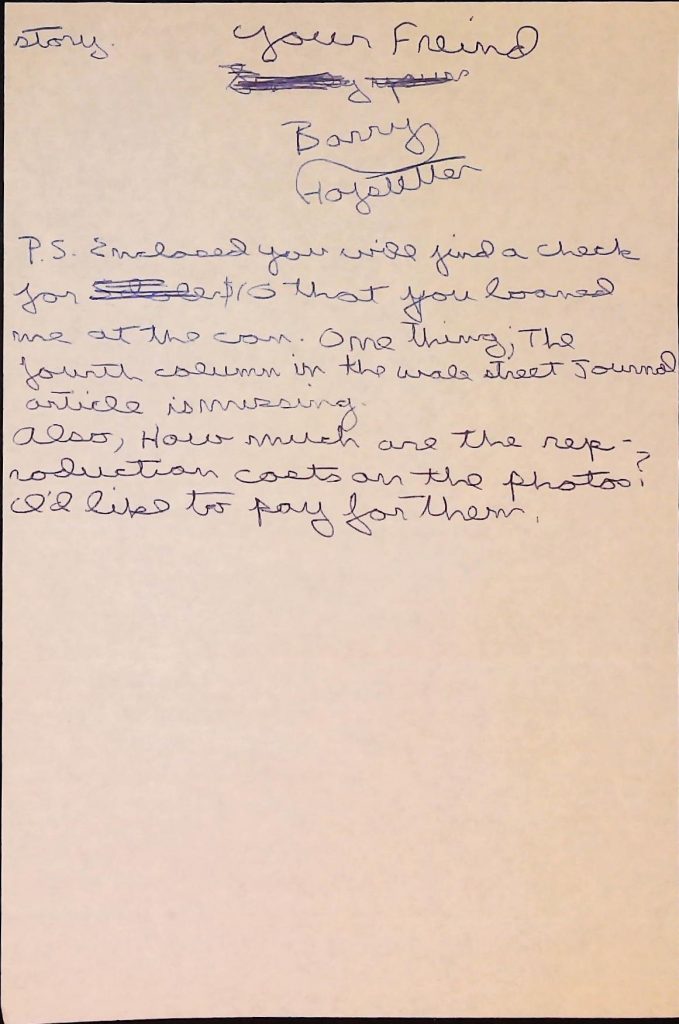 story.
Your Freind
Barry
Hofstetter
P.S. Enclosed you will find a check
for $10 that you loaned
me at the con. One thing; The
fourth column in the wall street Journal
article is missing.
Also, How much are the rep-
roduction costs on the photos?
I'd like to pay for them.